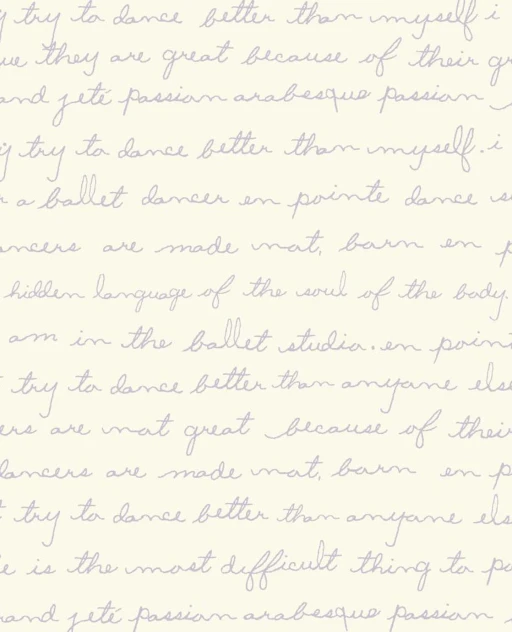 y try to dance better than myself i
ue they are great because of their gr
and jeté passion arabesque passion
y try to dance better than myself. i
r a ballet dancer en pointe dance s
ancers are made not, born en p
hidden language of the soul of the body.
am in the ballet studio. en point
t try to dance better than anyone else
ers are not great because of their
dancers are made not, born en p
t try to dance better than anyone els
e is the most difficult thing to po
and jeté passion arabesque passion